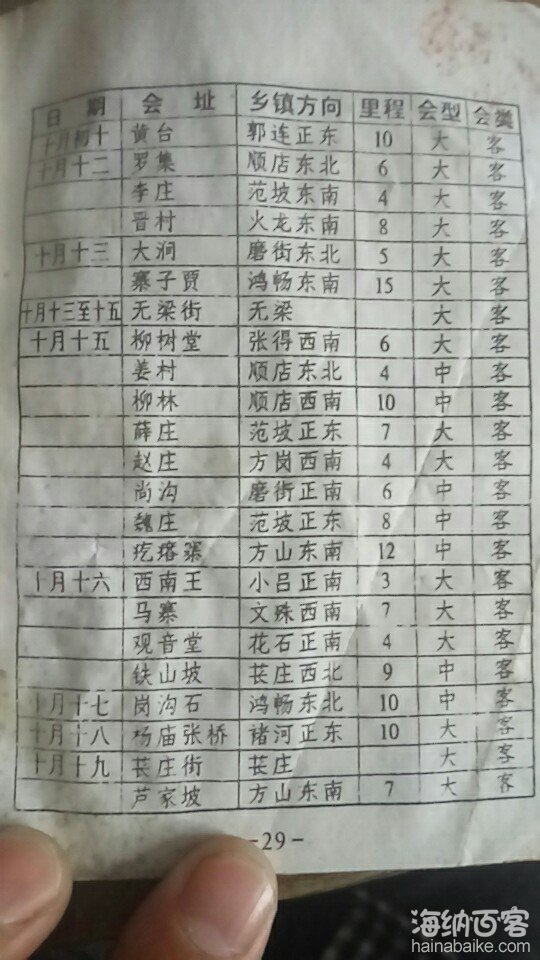 日 期 会 址 乡镇方向 里程 会型 会类
十月初十 黄台 郭连正东 10 大 客
十月十二 罗集 顺店东北 6 大 客
李庄 范坡东南 4 大 客
晋村 火龙东南 8 大 客
十月十三 大涧 磨街东北 5 大 客
寨子贾 鸿畅东南 15 大 客
十月十三至十五 无梁街 无梁 大 客
十月十五 柳树堂 张得西南 6 大 客
姜村 顺店东北 4 中 客
柳林 顺店西南 10 中 客
薛庄 范坡正东 7 大 客
赵庄 方岗西南 4 大 客
尚沟 磨街正南 6 中 客
魏庄 范坡正东 8 中 客
疙瘩寨 方山东南 12 中 客
十月十六 西南王 小吕正南 3 大 客
马寨 文殊西南 7 大 客
观音堂 花石正南 4 大 客
铁山坡 苌庄西北 9 中 客
十月十七 岗沟石 鸿畅东北 10 中 客
十月十八 杨庙张桥 褚河正东 10 大 客
十月十九 苌庄街 苌庄 大 客
芦家坡 方山东南 7 大 客
-29-
海纳百客
hainabaike.com